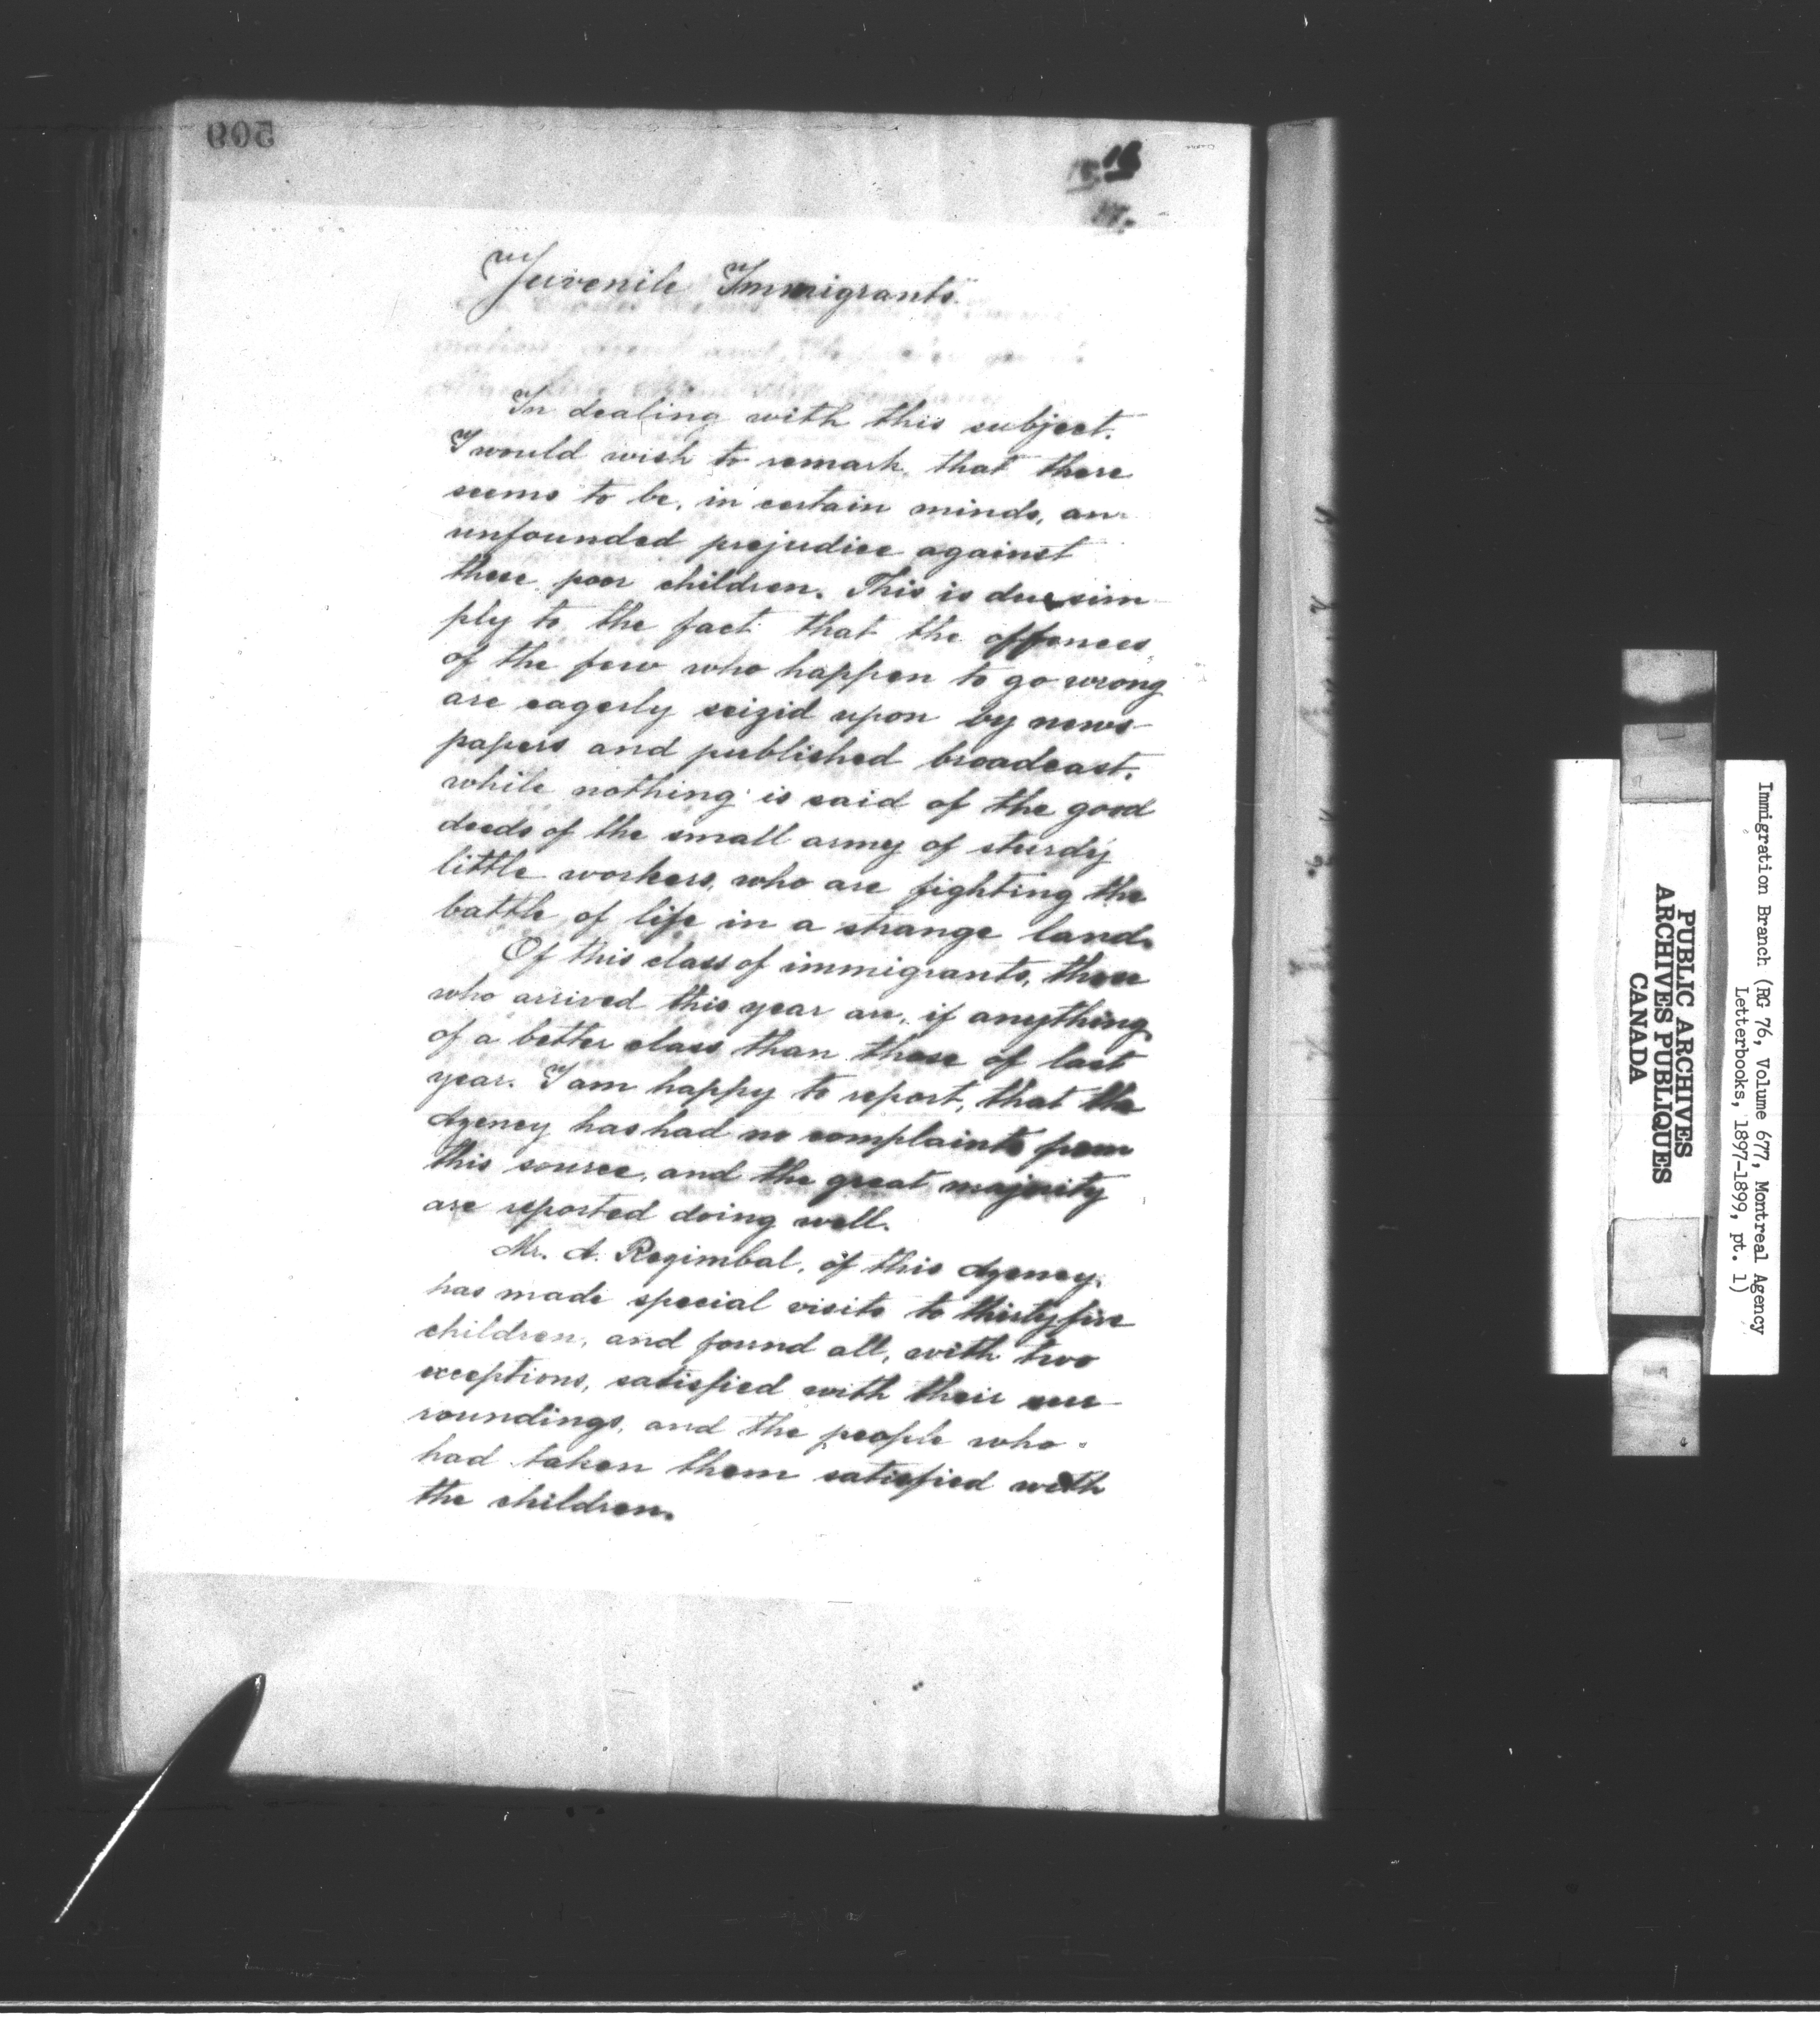 509
16
Juvenile Immigrants.
In dealing with this subject.
I would wish to remark, that there
seems to be, in certain minds, an
unfounded prejudice against
these poor children. This is due sim-
ply to the fact that the offences,
of the few who happen to go wrong
are eagerly seizid upon by news-
papers and published broadcast,
while nothing is said of the good
deeds of the small army of sturdy
little workers, who are fighting the
battle of life in a strange land.
Of this class of immigrants, those
who arrived this year are, if anything
of a better class than those of last
year. I am happy to report, that the
Agency has had no complaints from
this source, and the great majority
are reported doing well.
Mr. A. Regimbal, of this Agency,
has made special visits to thirty five
children, and found all, with two
exceptions, satisfied with their sur-
roundings, and the people who
had taken them satisfied with
the children.
Immigration Branch (RG 76, Volume 677, Montreal Agency
Letterbooks, 1897-1899, pt. 1)
PUBLIC ARCHIVES
ARCHIVES PUBLIQUES
CANADA